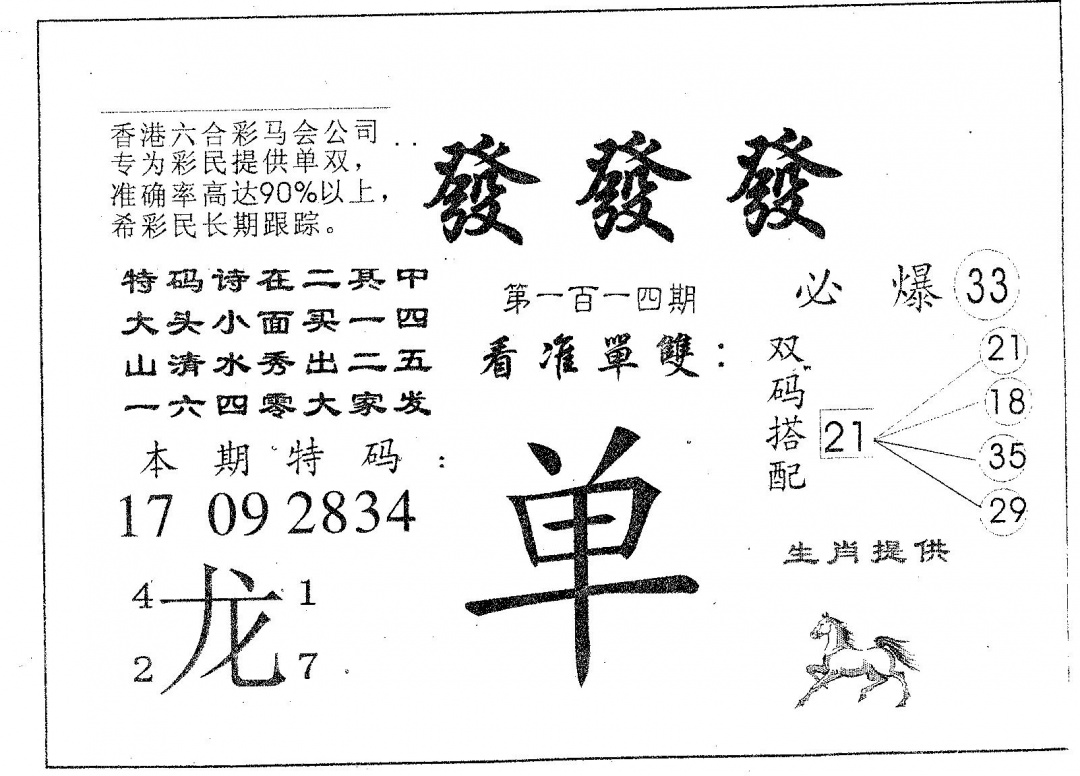 香港六合彩马会公司
专为彩民提供单双，
准确率高达90%以上，
希彩民长期跟踪。
發發發
特码诗在二其中
大头小面买一四
山清水秀出二五
一六四零大家发
第一百一四期
看准單雙：
单
必爆33
双码搭配
21
21
18
35
29
本期特码：
17 09 2834
4 1
龙
2 7
生肖提供